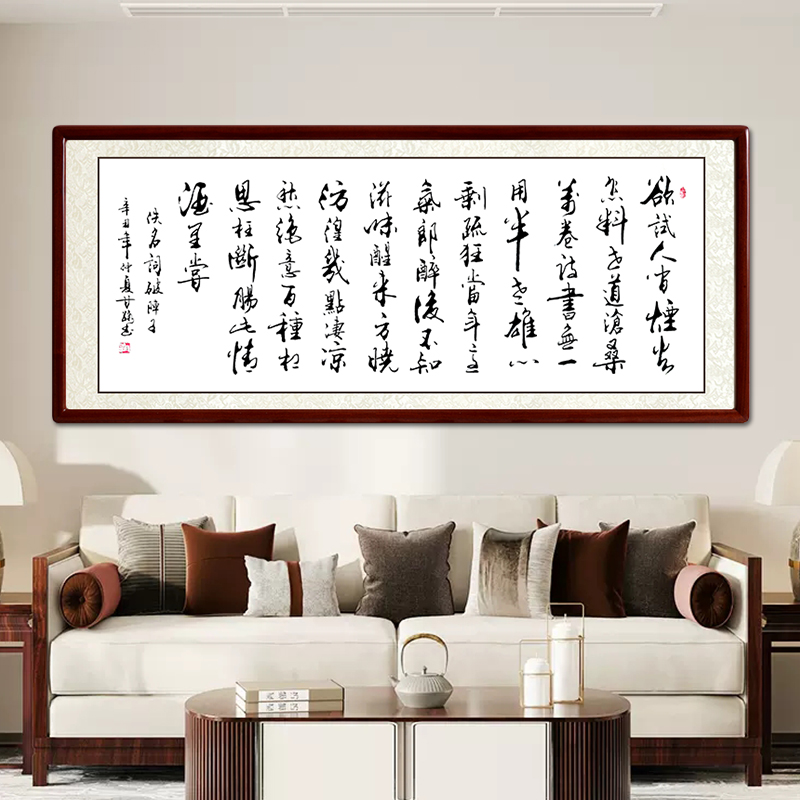 欲試人間煙火
怎料世道滄桑
萬卷詩書無一
用半世雄心
剩疏狂當年意
氣郎醉後不知
滋味醒來方曉
彷徨幾點淒涼
愁絕意百種相
思枉斷腸此情
酒里嘗
佚名詞破陣子
辛丑年仲夏